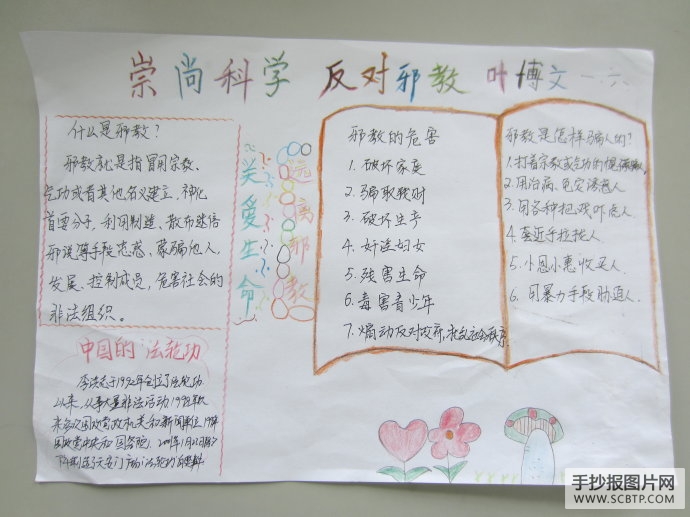 崇尚科学 反对邪教 叶博文 一·六
什么是邪教?
邪教就是指冒用宗教、
气功或者其他名义建立,神化
首要分子,利用制造、散布迷信
邪说等手段蛊惑、蒙骗他人,
发展、控制成员,危害社会的
非法组织。
中国的"法轮功
李洪志于1992年创立了法轮功
以来,从事大量非法活动
关爱生命
远离邪教
邪教的危害
1. 破坏家庭
2. 骗取钱财
3. 破坏生产
4. 奸淫妇女
5. 残害生命
6. 毒害青少年
7. 煽动反对政府,扰乱社会秩序
邪教是怎样骗人的?
1. 打着宗教或气功的幌
2. 用治病、免灾诱惑人
3. 用各种把戏吓唬人
4. 套近乎拉拢人
5. 小恩小惠收买人
6. 用暴力手段胁迫人
手抄报图片网
WWW.SCBTP.COM